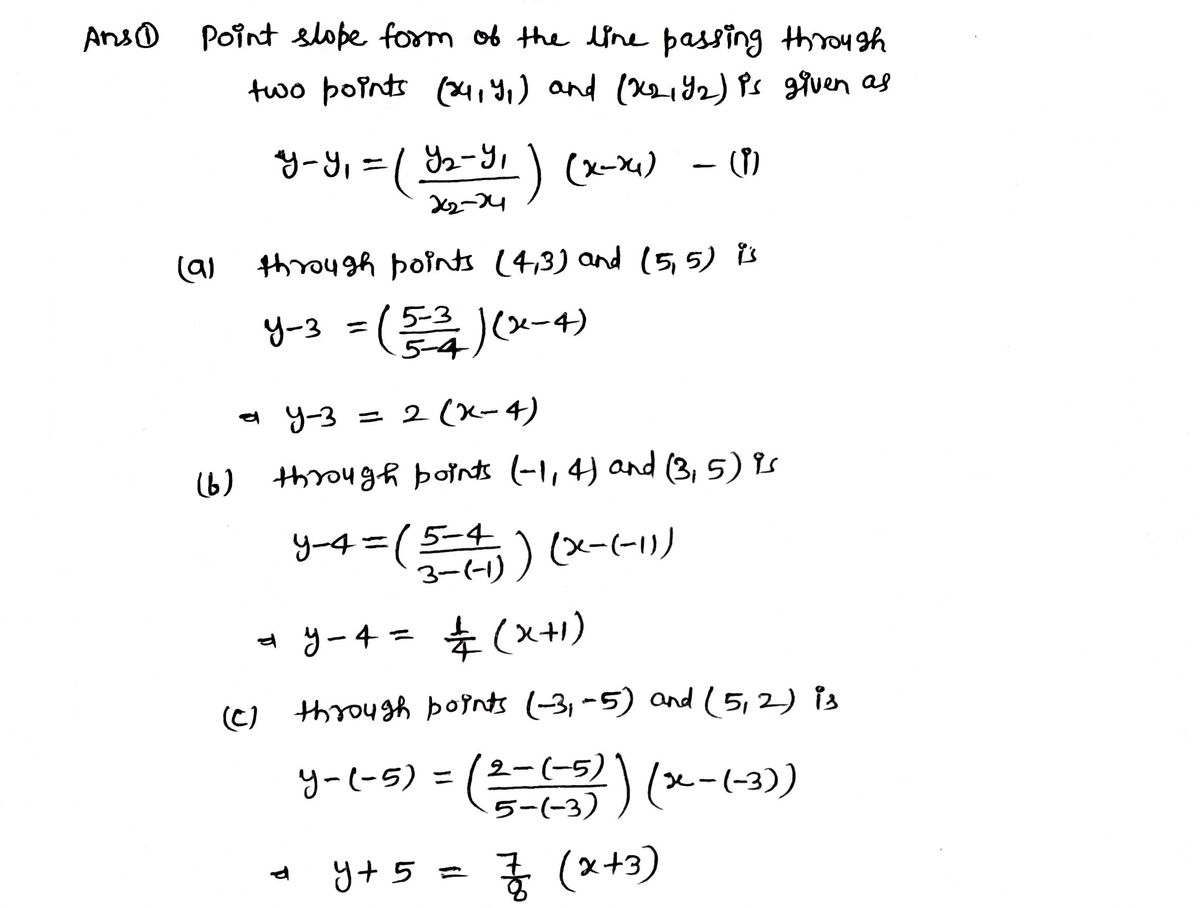 Ans① Point slope form of the line passing through
two points (x₁, y₁) and (x₂, y₂) is given as
y-y₁ = ( (y₂-y₁)/(x₂-x₁) ) (x-x₁) - (i)
(a) through points (4,3) and (5, 5) is
y-3 = ( (5-3)/(5-4) ) (x-4)
⇒ y-3 = 2 (x-4)
(b) through points (-1, 4) and (3, 5) is
y-4 = ( (5-4)/(3-(-1)) ) (x-(-1))
⇒ y-4 = 1/4 (x+1)
(c) through points (-3, -5) and (5, 2) is
y-(-5) = ( (2-(-5))/(5-(-3)) ) (x-(-3))
⇒ y+5 = 7/8 (x+3)